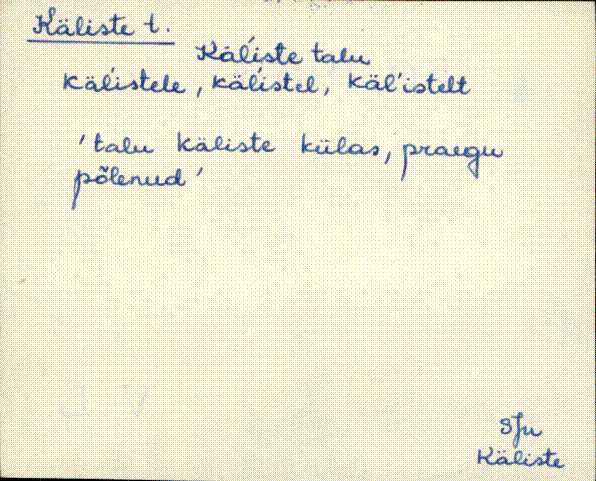 Käliste t.
Käĺiste talu
käĺistele, käĺistel, käl'istelt
'talu käliste külas, praegu
põlenud'
Käliste